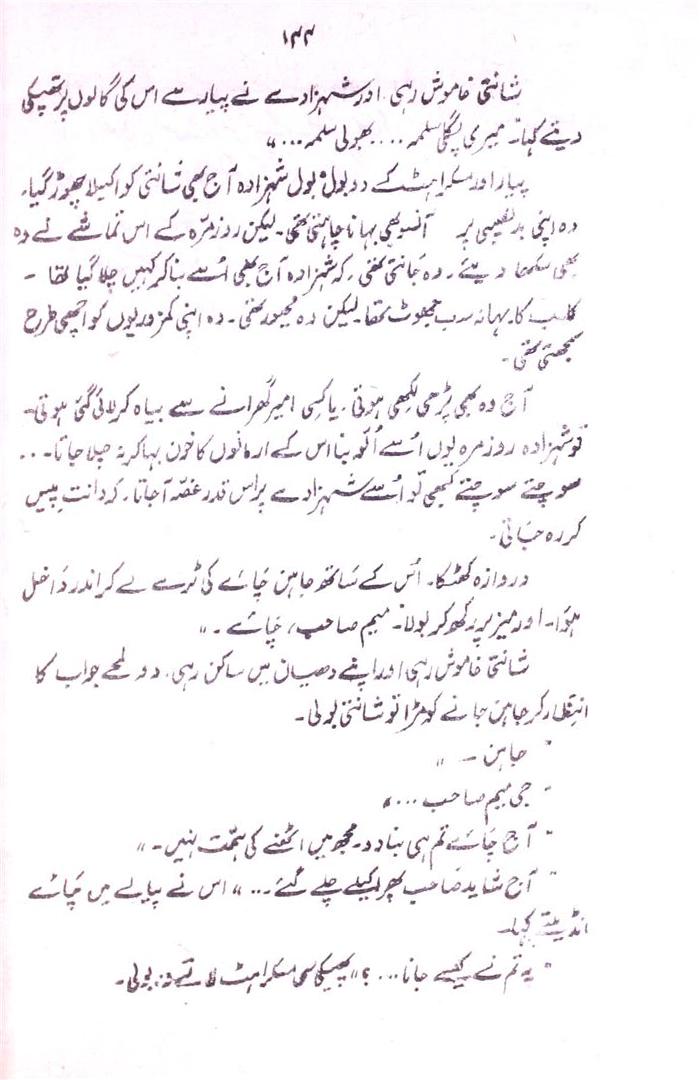 ۱۳۳
شانتی خاموش رہی۔ اور شہزادے نے پیار سے اس کی گالوں پر تھپکی
دیتے کہا۔ میری پگلی سلمہ .... بھولی سلمہ ...“
پیار اور مسکراہٹ کے دو بول بول شہزادہ آج بھی شانتی کو اکیلا چھوڑ گیا۔
وہ اپنی بدنصیبی پر آنسو بھی بہانا چاہتی تھی۔ لیکن روزمرّہ کے اس تماشے نے وہ
بھی سکھا دیئے۔ وہ جانتی تھی۔ کہ شہزادہ آج بھی اُسے بنا کر کہیں چلا گیا تھا —
کلب کا بہانہ سب جھوٹ تھا لیکن وہ مجبور تھی۔ وہ اپنی کمزوریوں کو اچھی طرح
سمجھتی تھی۔
آج وہ بھی پڑھی لکھی ہوتی۔ یا کسی امیر گھرانے سے بیاہ کر لائی گئی ہوتی۔
تو شہزادہ روزمرہ یوں اُسے اُلّو بنا اس کے ارمانوں کا خون بہا کر نہ چلا جاتا۔...
سوچتے سوچتے کبھی تو اُسے شہزادے پر اس قدر غصّہ آ جاتا۔ کہ دانت پیس
کر رہ جاتی۔
دروازہ کھٹکا۔ اُس کے ساتھ جاہن چائے کی ٹرے لے کر اندر داخل
ہوا۔ اور میز پر رکھ کر بولا۔ میم صاحب، چائے۔“
شانتی خاموش رہی اور اپنے دھیان میں ساکن رہی۔ دو لمحے جواب کا
انتظار کر جاہن جانے کو مڑا تو شانتی بولی۔
”جاہن —“
”جی میم صاحب ...“
”آج چائے تم ہی بنا دو۔ مجھ میں اٹھنے کی ہمّت نہیں۔“
”آج شاید صاحب پھر اکیلے چلے گئے ...“ اس نے پیالے میں چائے
انڈیلتے کہا۔
”یہ تم نے کیسے جانا...؟“ پھیکی سی مسکراہٹ لاتے وہ بولی۔